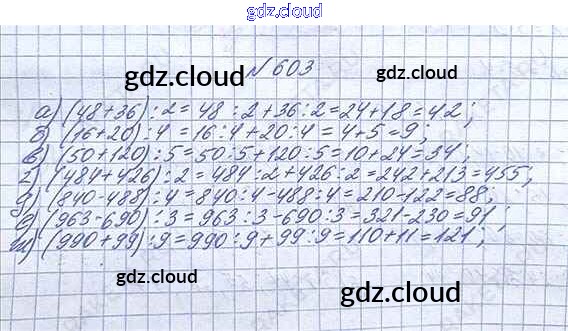 gdz.cloud
gdz.cloud № 603
а) (48+36):2=48:2+36:2=24+18=42;
б) (16+20):4=16:4+20:4=4+5=9;
в) (50+120):5=50:5+120:5=10+24=34;
г) (484+426):2=484:2+426:2=242+213=455;
д) (840-488):4=840:4-488:4=210-122=88;
е) (963-690):3=963:3-690:3=321-230=91;
ж) (990+99):9=990:9+99:9=110+11=121;
gdz.cloud
gdz.cloud